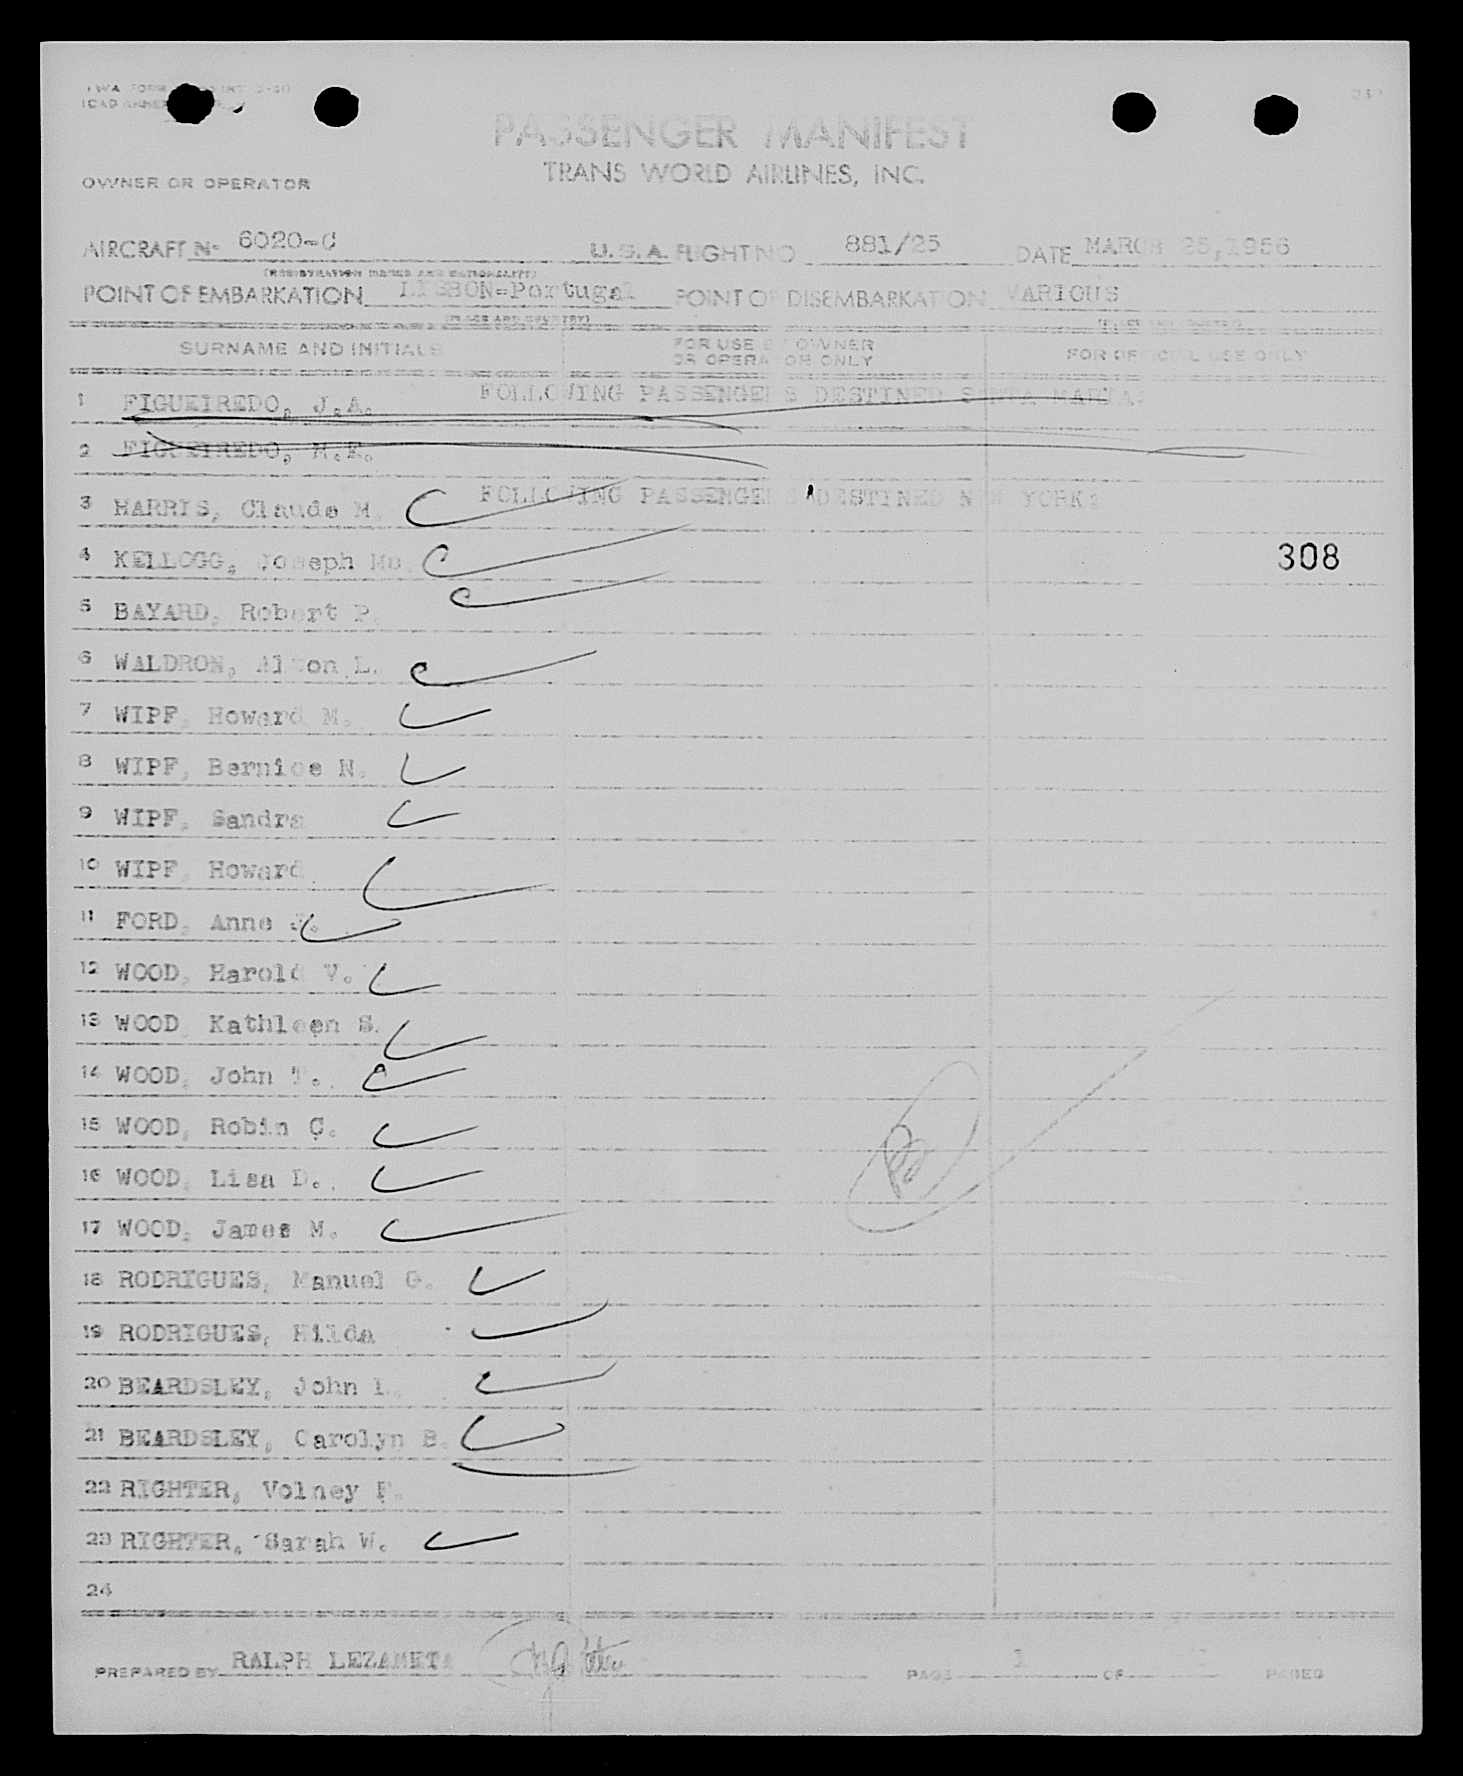 PASSENGER MANIFEST
TRANS WORLD AIRLINES, INC.
OWNER OR OPERATOR
AIRCRAFT No 6020-C U.S.A. FLIGHT NO 881/25 DATE MARCH 25,1956
(REGISTRATION MARKS AND NATIONALITY)
POINT OF EMBARKATION LISBON-Portugal POINT OF DISEMBARKATION VARIOUS
(PLACE AND COUNTRY)
SURNAME AND INITIALS FOR USE BY OWNER OR OPERATOR ONLY FOR OFFICIAL USE ONLY
FOLLOWING PASSENGERS DESTINED SANTA MARIA:
1 FIGUEIREDO, J.A.
2 FIGUEIREDO, M.E.
FOLLOWING PASSENGERS DESTINED NEW YORK:
3 HARRIS, Claude M.
4 KELLOGG, Joseph Mc. 308
5 BAYARD, Robert P.
6 WALDRON, Alton L.
7 WIPF, Howard M.
8 WIPF, Bernice N.
9 WIPF, Sandra
10 WIPF, Howard
11 FORD, Anne
12 WOOD, Harold V.
13 WOOD Kathleen S.
14 WOOD, John T.
15 WOOD, Robin C.
16 WOOD, Lisa D.
17 WOOD, James M.
18 RODRIGUES, Manuel G.
19 RODRIGUES, Hilda
20 BEARDSLEY, John
21 BEARDSLEY, Carolyn B.
22 RIGHTER, Volney F.
23 RIGHTER, Sarah W.
24
PREPARED BY RALPH LEZAMETA PAGE 1 OF PAGES